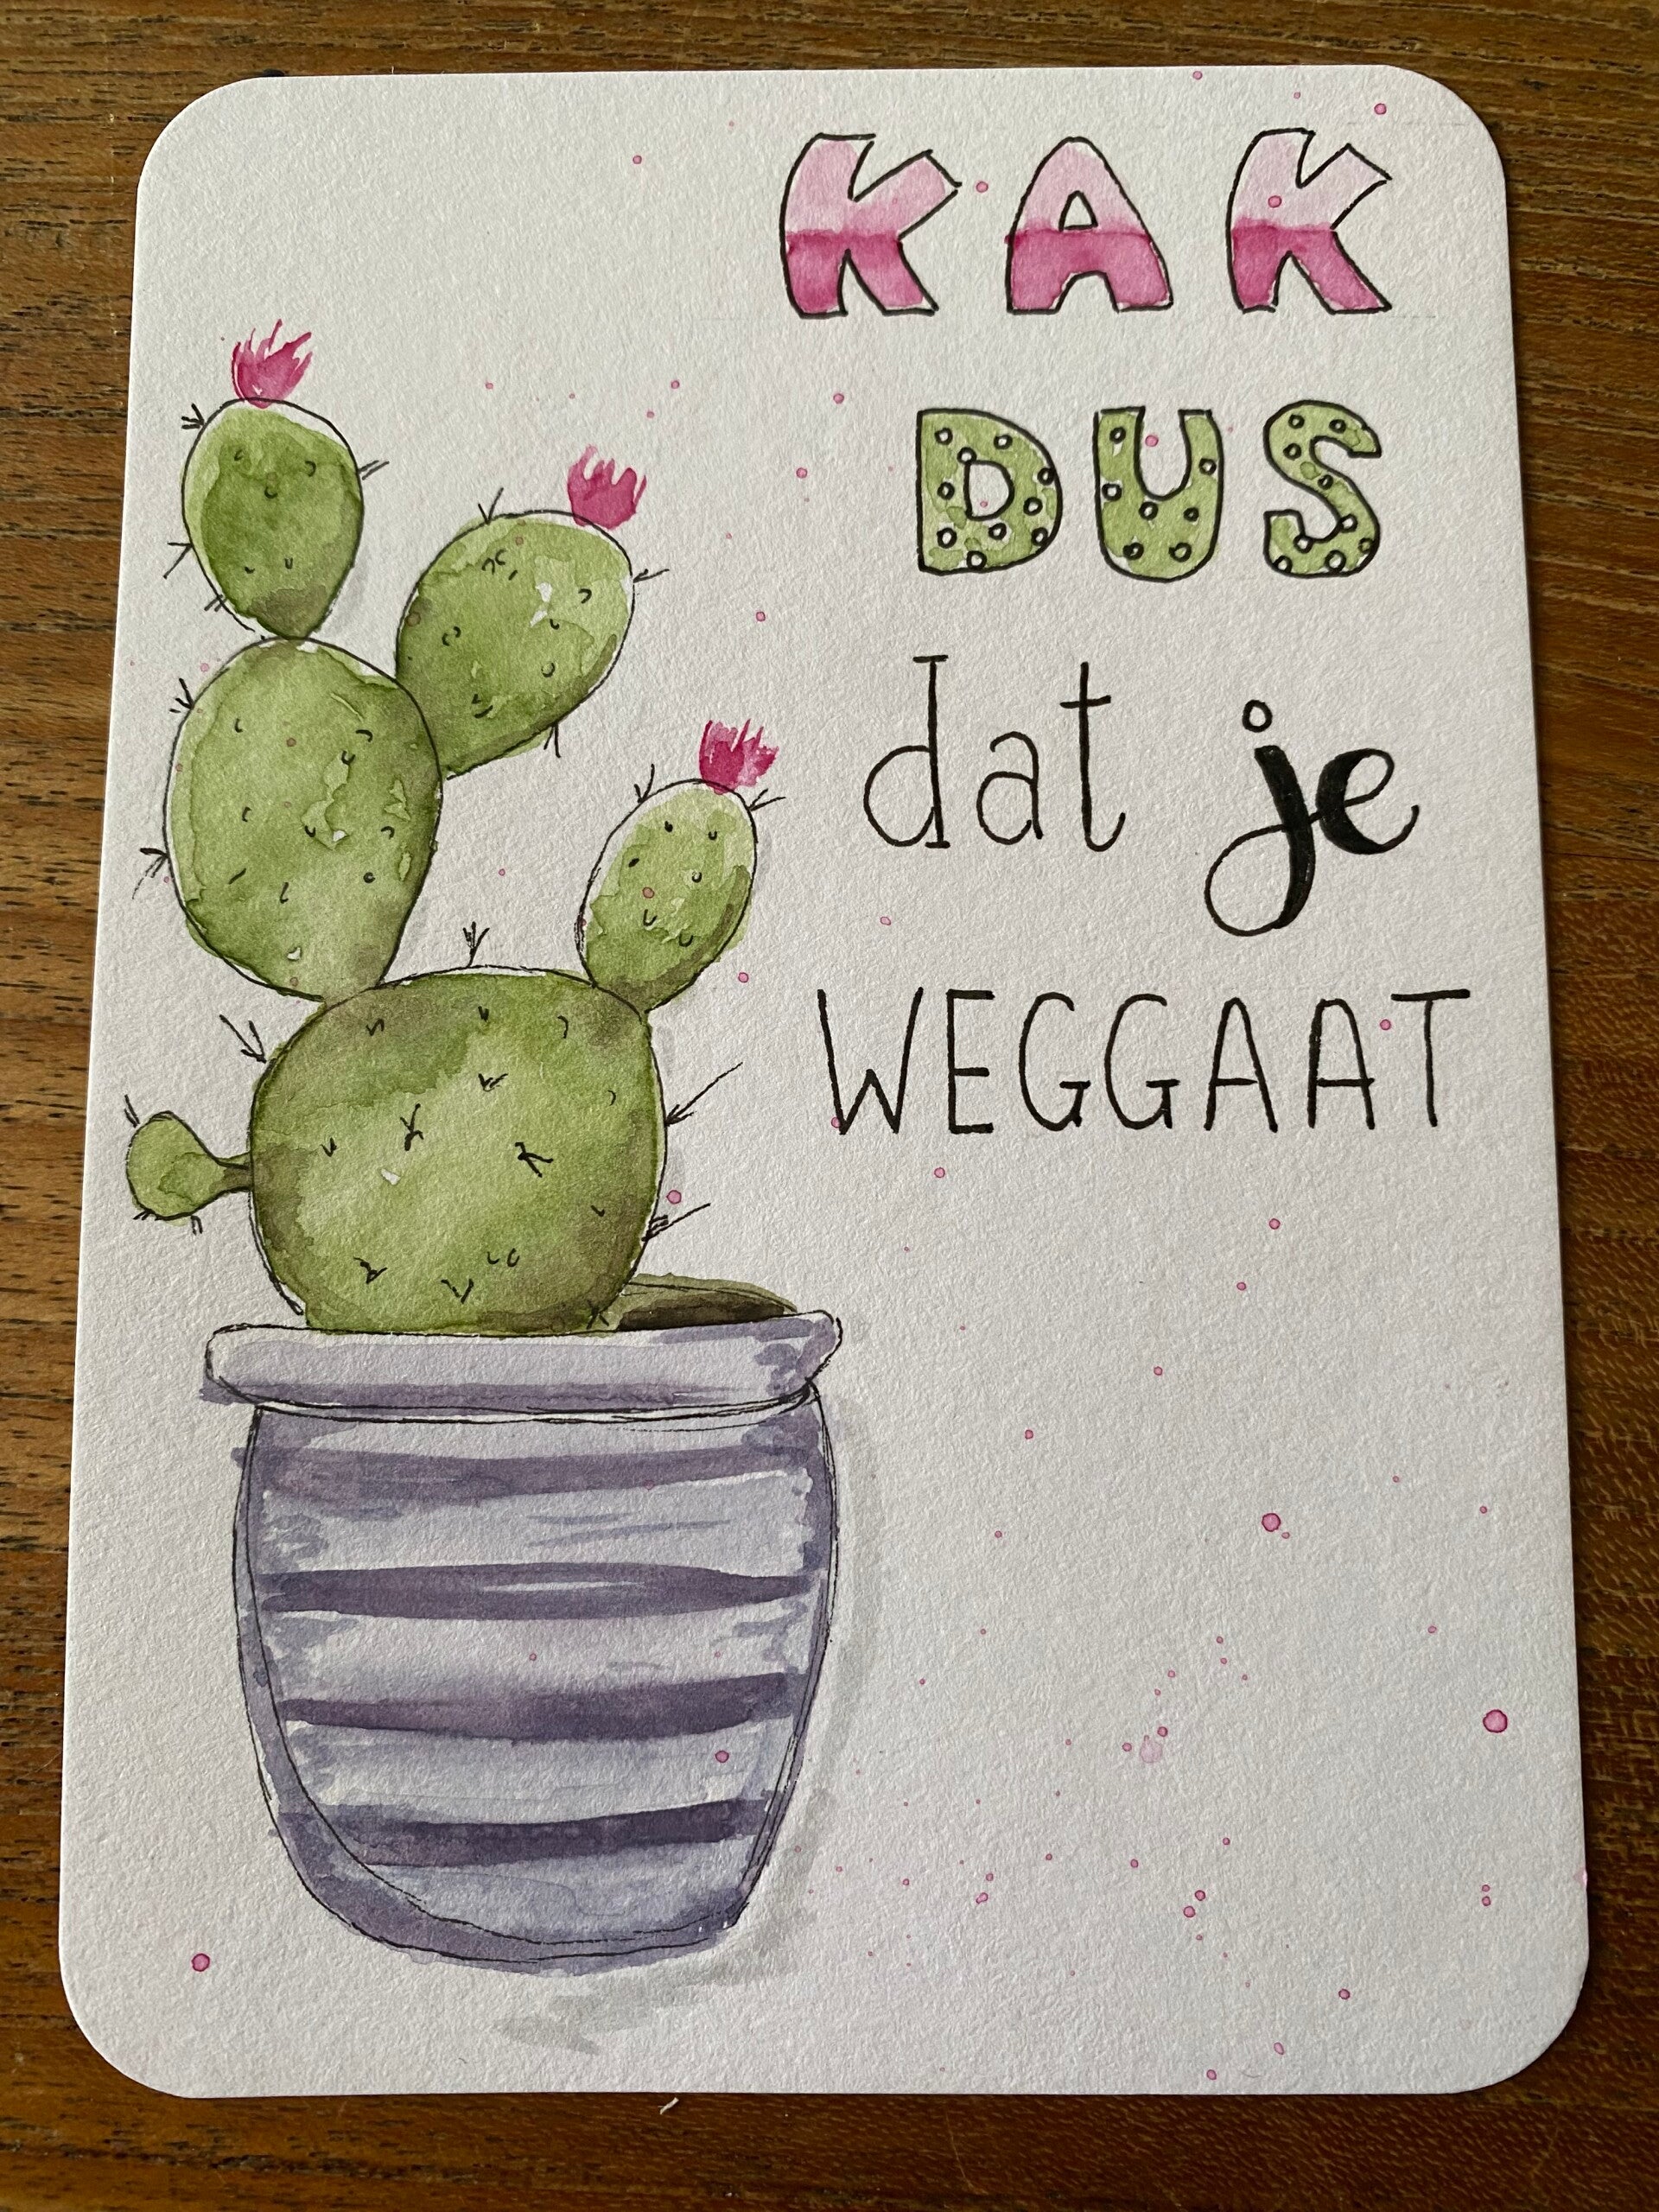 KAK
DUS
dat je
WEGGAAT